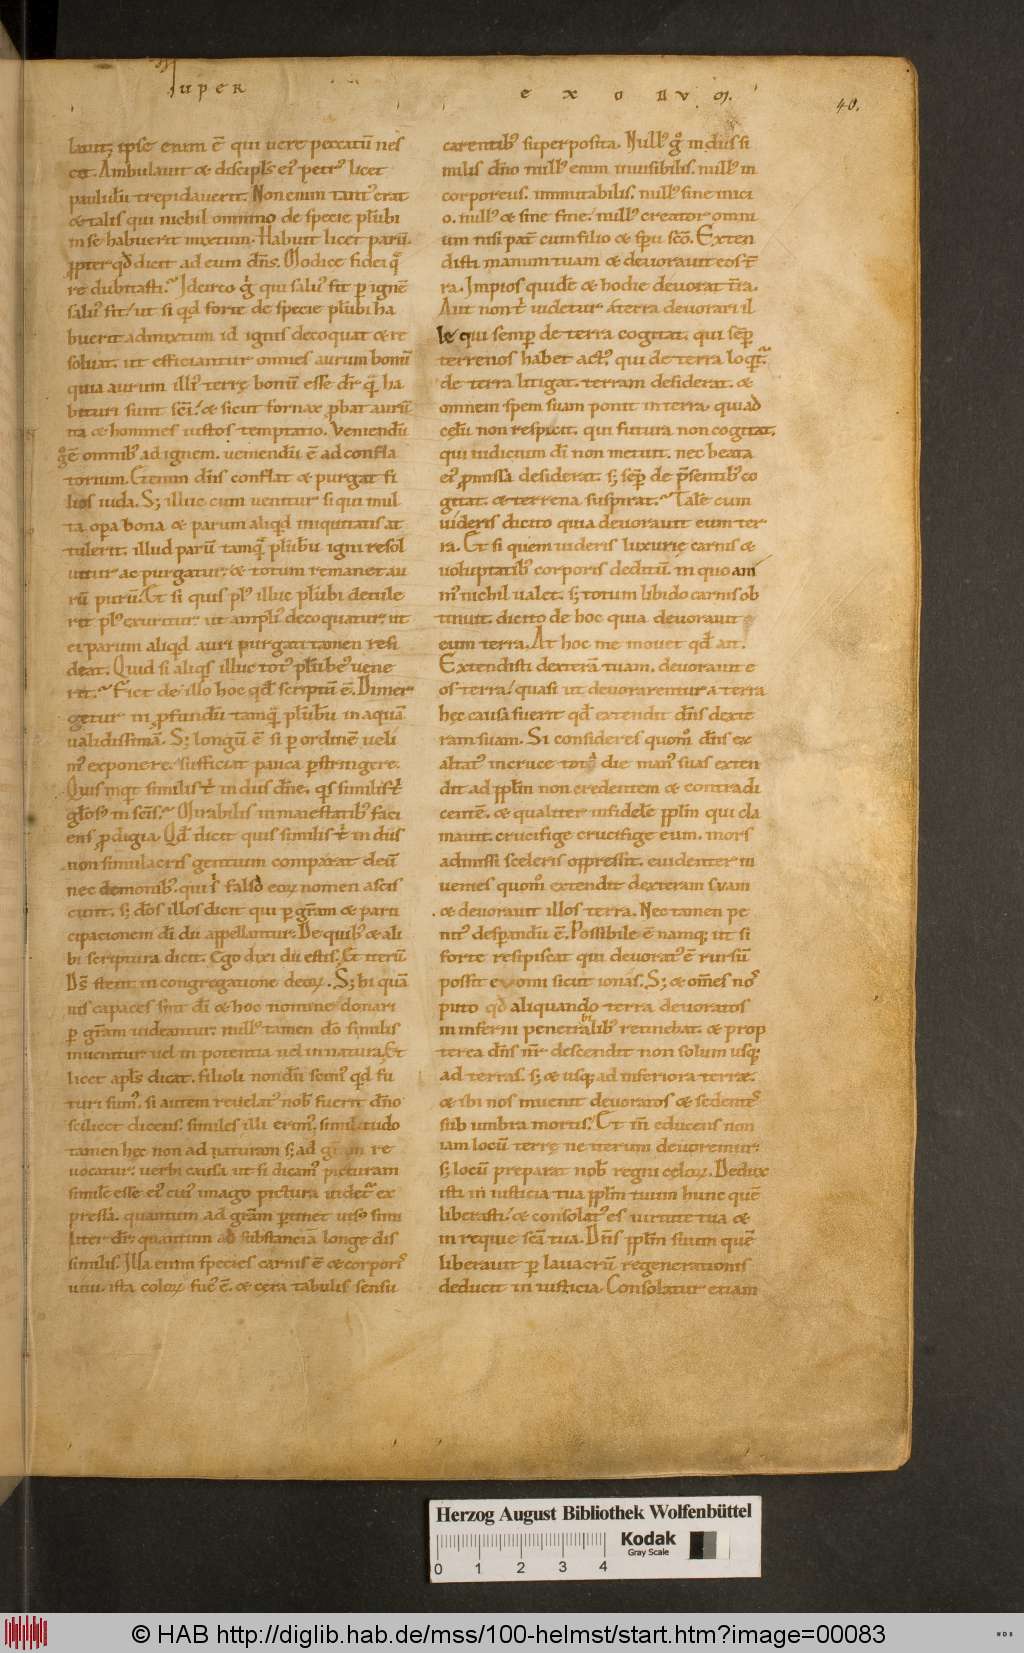 SUPER EXODUM.
40.
lauit; ipse enim ē qui uere peccatū nes
cit. Ambulauit & discipl's ei' petr' licet
paululū trepidauerit. Non enim tant' erat
& talis qui nichil omnino de specie plūbi
in se habuerit mixtum. Habuit licet parū.
ꝓpter qđ dicit ad eum dn̄s. Modice fidei q̄
re dubitasti? Idcirco g̊ qui salu' fit ꝑ ignē
salu' fit, ut si qđ forte de specie plūbi ha
buerit admixtum id ignis decoquat & re
soluat. ut efficiantur omnes aurum bonū
quia aurum illi' terrę bonū esse dr̄ q̄ ha
bituri sunt sc̄i. & sicut fornax ꝓbat aurū
ita & homines iustos temptatio. Veniendū
g̊ ē omnib' ad ignem. ueniendū ē ad confla
torium. Etenim dn̄s conflat & purgat fi
lios iuda. S; illuc cum uenitur si qui mul
ta oꝑa bona & parum aliqđ iniquitatis at
tulerit. illud parū tamq̄ plūbū igni resol
uitur ac purgatur. & totum remanet au
rū purū. Et si quis pl' illuc plūbi detule
rit pl' exuritur. ut ampli' decoquatur. ut
ei parum aliqđ auri purgati tamen resi
deat. Quid si aliqs illuc tot' plūbe' uene
rit? Fiet de illo hoc qđ scriptū ē. Dimer
getur in ꝓfundū tamq̄ plūbū in aquā
ualidissimā. S; longū ē si ꝑ ordinē ueli
m' exponere. sufficiat pauca ꝑstringere.
Quis inqt similis t̄ in diis dn̄e. qs similis t̄
gl̄os' in sc̄is? Mirabilis in maiestatib' faci
ens ꝓdigia. Qđ dicit quis similis t̄ in diis
non simulacris gentium comparat deū
nec demonib'. qui s̄ falso eoꝝ nomen ascis
cunt. s; dōs illos dicit qui ꝑ gr̄am & parti
cipacionem dī dii appellantur. De quib' & ali
bi scriptura dicit. Ego dixi dii estis. Et iterū
Ds̄ stetit in congregatione deoꝝ. S; hi quā
uis capaces sint dī & hoc nomine donari
ꝑ gr̄am uideantur. null' tamen dō similis
inuenitur uel in potentia uel in natura. Et
licet apl's dicat. filioli nondū scim' qđ fu
turi sum'. si autem reuelat' nob' fuerit dn̄o
scilicet dicens. similes illi erim'. similitudo
tamen hęc non ad naturam s; ad gr̄am re
uocatur. uerbi causa ut si dicam' picturam
similē esse ei' cui' imago pictura uidet' ex
pressa. quantum ad gr̄am ꝑtinet uis' simi
liter dr̄. quantum ad substanciā longe dis
similis. Illa enim species carnis ē & corporis
uiui. ista coloꝝ fuc' ē. & cera tabulis sensu
carentib' superposita. Null' g̊ in diis si
milis dn̄o null' enim inuisibilis. null' in
corporeus. inmutabilis. null' sine inici
o. null' & sine fine. null' creator omni
um nisi pat̄ cum filio & sp̄u sc̄o. Exten
disti manum tuam & deuorauit eos t̄
ra. Impios quidē & hodie deuorat t̄ra.
Aut non t̄ uidetur a terra deuorari il
le qui semꝑ de terra cogitat. qui semꝑ
terrenos habet act'. qui de terra loqt̄.
de terra litigat. terram desiderat. &
omnem spem suam ponit in terra. qui ad
cęlū non respicit. qui futura non cogitat.
qui iudicium dī non metuit. nec beata
ei' ꝓmissa desiderat. s; semꝑ de p̄sentib' co
gitat. & terrena suspirat? Tale cum
uideris dicito quia deuorauit eum ter
ra. Et si quem uideris luxurię carnis &
uoluptatib' corporis deditū. in quo ani
m' nichil ualet. s; totum libido carnis ob
tinuit. dicito de hoc quia deuorauit
eum terra. At hoc me mouet qđ ait.
Extendisti dexterā tuam. deuorauit e
os terra. quasi ut deuorarentur a terra
hęc causa fuerit qđ extendit dn̄s dexte
ram suam. Si consideres quom' dn̄s ex
altat' in cruce tota die man' suas exten
dit ad ppl̄m non credentem & contradi
centē. & qualiter infidelē ppl̄m qui cla
mauit. crucifige crucifige eum. mors
admissi sceleris oppressit. euidenter in
uenies quom' extendit dexteram suam
& deuorauit illos terra. Nec tamen pe
nit' desꝑandū ē. Possibile ē namq; ut si
forte resipiscat qui deuorat' ē rursū
possit euomi sicut ionas. S; & om̄es nos
puto qđ aliquando terra deuoratos
in inferni penetralib' retinebat. & prop
terea dn̄s nr̄ descendit non solum usq;
ad terras. s; & usq; ad inferiora terrae.
& ibi nos inuenit deuoratos & sedentes
sub umbra mortis. Et in̄ educens non
iam locū terrę ne iterum deuoremur.
s; locū preparat nob' regni cęloꝝ. Dedux
isti in iusticia tua ppl̄m tuum hunc quē
liberasti. & consolat' es uirtute tua &
in requie sc̄a tua. Dn̄s ppl̄m suum quē
liberauit ꝑ lauacrū regenerationis
deducit in iusticia. Consolatur etiam
Herzog August Bibliothek Wolfenbüttel
Kodak
Gray Scale
0 1 2 3 4
© HAB http://diglib.hab.de/mss/100-helmst/start.htm?image=00083